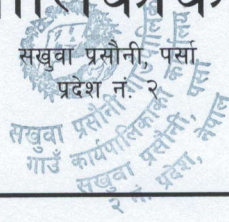 सखुवा प्रसौनी, पर्सा
प्रदेश नं. २
सखुवा प्रसौनी गाउँपालिका
गाउँ कार्यपालिकाको कार्यालय
सखुवा प्रसौनी, पर्सा
२ नं. प्रदेश, नेपाल